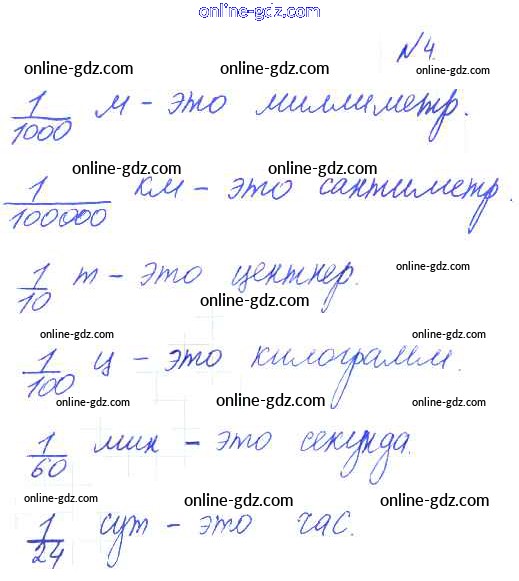 online-gdz.com
N4.
online-gdz.com online-gdz.com online-gdz.com
1/1000 м - это миллиметр.
online-gdz.com online-gdz.com
1/100000 км - это сантиметр.
online-gdz.com
1/10 т - это центнер.
online-gdz.com
online-gdz.com online-gdz.com
1/100 ц - это килограмм.
online-gdz.com online-gdz.com online-gdz.com
1/60 мин - это секунда.
online-gdz.com online-gdz.com online-gdz.com
1/24 сут - это час.